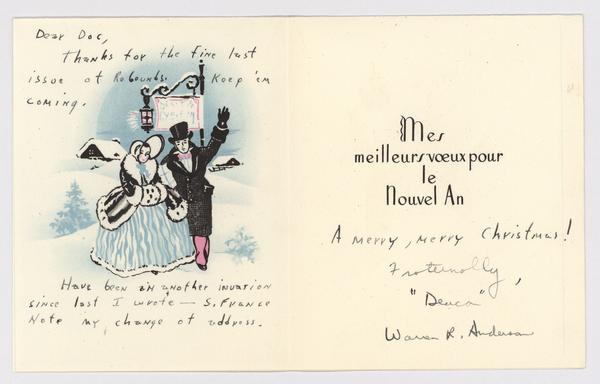 Dear Doc,
Thanks for the fine last
issue of Rebounds. Keep 'em
coming.
Have been in another invasion
since last I wrote — S. France
Note my change of address.
Mes
meilleurs vœux pour
le
Nouvel An
A merry, merry Christmas!
Fraternally,
"Deacon"
Warren R. Anderson